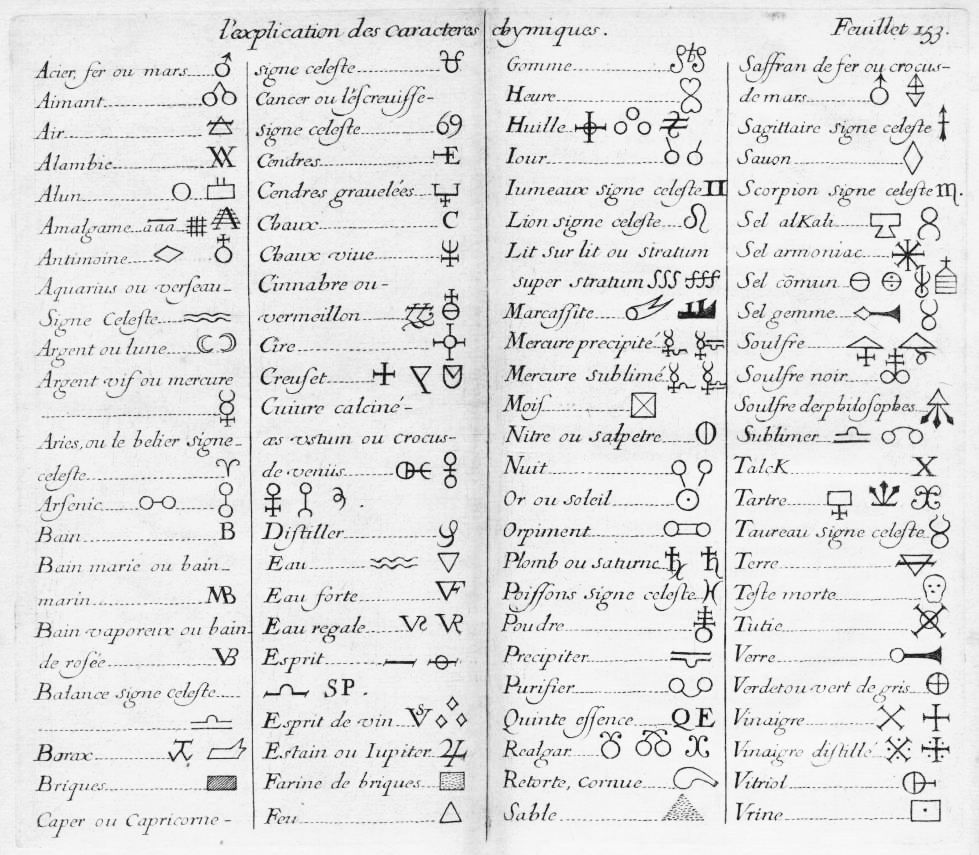 l'explication des Caracteres chymiques. Feuillet 153.
Acier, fer ou mars
Aimant
Air
Alambic
Alun
Amalgame aaa
Antimoine
Aquarius ou verseau-
Signe Celeste
Argent ou lune
Argent vif ou mercure
Aries, ou le belier signe-
celeste
Arsenic
Bain B
Bain marie ou bain-
marin MB
Bain vaporeux ou bain
de rosée VB
Balance signe celeste
Borax
Briques
Caper ou Capricorne-
signe celeste
Cancer ou l'escreuisse-
signe celeste 69
Cendres E
Cendres grauelées
Chaux C
Chaux viue
Cinnabre ou-
vermeillon
Cire
Creuset
Cuiure calciné-
æs vstum ou crocus-
de venus
Distiller
Eau
Eau forte VF
Eau regale VR
Esprit
SP.
Esprit de vin VS
Estain ou Iupiter
Farine de briques
Feu
Gomme
Heure
Huille
Iour
Iumeaux signe celeste II
Lion signe celeste
Lit sur lit ou stratum
super stratum SSS
Marcassite
Mercure precipité
Mercure sublimé
Mois
Nitre ou salpetre
Nuit
Or ou soleil
Orpiment
Plomb ou saturne
Poissons signe celeste
Poudre
Precipiter
Purifier
Quinte essence QE
Realgar
Retorte, cornue
Sable
Saffran de fer ou crocus-
de mars
Sagittaire signe celeste
Sauon
Scorpion signe celeste
Sel alKali
Sel armoniac
Sel cōmun
Sel gemme
Soulfre
Soulfre noir
Soulfre des philosophes
Sublimer
TalcK X
Tartre
Taureau signe celeste
Terre
Teste morte
Tutie
Verre
Verdet ou vert de gris
Vinaigre
Vinaigre distillé
Vitriol
Vrine